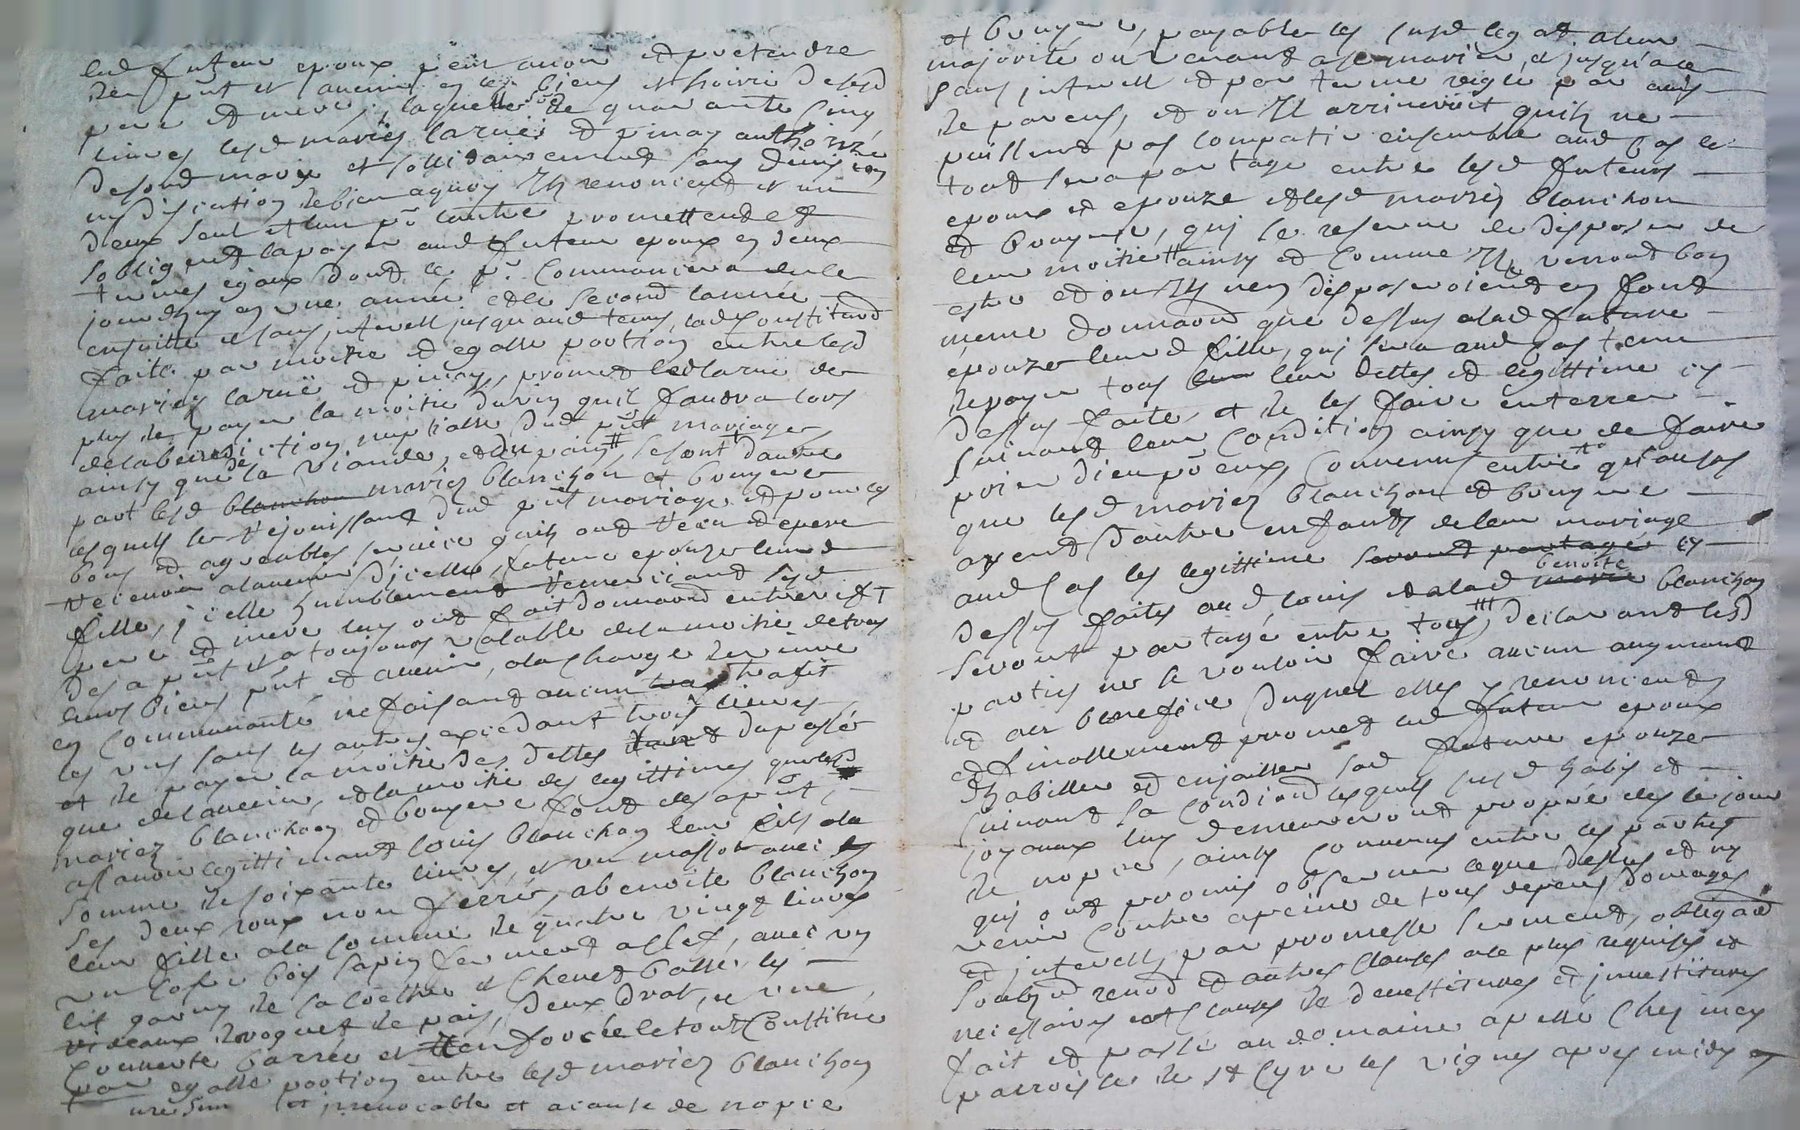 led futeur epoux peut avoir et pretendre
de pnt et avenir es biens et hoirie desd
pere et mere, laquelle sôe de quarante cinq
livres lesd mariés larüe et pinay authorizée
desond mary et sollidairement sans division
ny discution de bien aquoy ils renoncient et un
deux seul et lun pr lautre promettend et
sobligent la payer aud futeur epoux en deux
termes egaux dont le pr commancera de ce
jourdhuy en une année et le second lannée
ensuitte et sans interest jusquaud tems, lad constitund
faite par moitié et egalle portion entre lesd
mariez larüe et pinay, promet led larüe de
plus de payer la moitié du vin quil faudra lors
de la benediction nuptialle dud pnt mariage
ainsy que de la viande, et du pain, se sont dautre
part lesd mariez blanchon et bouyere
lesquels se rejouissant dud pnt mariage et pour les
bons et agreables service quils ont receu et espere
recevoir alavenir dicelle, future epouze leurd
fille, icelle humblement remerciant sesd
pere et mere luy ont fait donnaond entrevifs
des a pnt et a toujours valable de la moitié de tous
leurs biens pnt et avenir, ala charge de vivre
en communauté ne faisant aucun trafit
les uns sans les autres excedant trois livres
et de payer la moitié des dettes tant du passé
que de lavenir, et la moitié des legittimes que lesd
mariez blanchon et bouyere font des apnt,
assavoir legittimant louis blanchon leur fils ala
somme de soixante livres, et un massot avec
ses deux roux non ferré, a benoite blanchon
leur fille ala somme de quatre vingt livres
un cofre bois sapin fermant a clef, avec un
lit garny de sa coettre et chevet balle, les
rideaux de roguet de pais, deux drat, et une
couverte barrée et le tout constitué
par egalle portion entre lesd mariez blanchon
et irrevocable et a cause de nopce
et bouyere, payable les susd legat aleur
majorité ou venant a se marier, et jusqua ce
sans interest et par terme reglé par amis
de parens, et ou il arriveroit quils ne
puissent pas compatir ensemble aud cas le
tout sera partagé entre lesd futeurs
epoux et epouze et lesd mariez blanchon
et bouyere, qui se reserve de disposer de
leur moitié ainsy et comme ils verront bon
estre et ou ils nen disposeroient en font
meme donnaond que dessus alad future
epouze leurd fille, qui sera aud cas tenue
de payer tous leur dettes et legittime cy
dessus faite, et de les faire enterrer
suivant leur condition ainsy que de faire
prier dieu pr eux, convenus entreux quaucas
que lesd mariez blanchon et bouyere
ayent dautre enfants de leur mariage
aud cas les legittime seront partagé cy
dessus faites aud louis et alad benoite blanchon
seront partagé entre tous, declarant lesd
partis ne se vouloir faire aucun augment
et au benefice duquel elles y renoncient
et finallement promet led futeur epoux
dhabiller et enjailler sad future epouze
suivant sa condiond lesquels susd habis et
joyaux luy demeureront propre des le jour
de nopce, ainsy convenus entre les parties
qui ont promis observer ceque dessus et ny
venir contre apeine de tous depens domages
et interests, par promesse serment, obligaond
soubzon renond et autres clauses ale plus requises et
necessaires et clauses de devestitures et investitures
fait et passé au domaine apellé chez mey
parroisse de st cyre les vignes apres midy